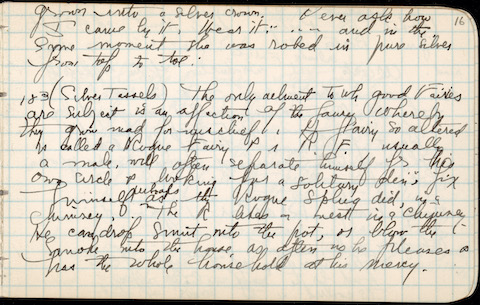 grows into a silver crown. & ever asks how 16
I came by it, Wear it: ... and in the
same moment she was robed in pure silver
from top to toe:
183 (Silver Tassels) The only ailment to wh good Fairies
are subject is an affection of the fairy whereby
they grow mad for mischief. A Fairy so altered
is called a Rogue Fairy & a R. F. usually
a male, will often separate himself fr his
own circle & looking for a solitary den, fix
himself perhaps as the Rogue did, in a
chimney. The R likes a nest in a Chimney
He can drop smut into the pot, or blow the
smoke into the house as often as he pleases &
has the whole household at his mercy.